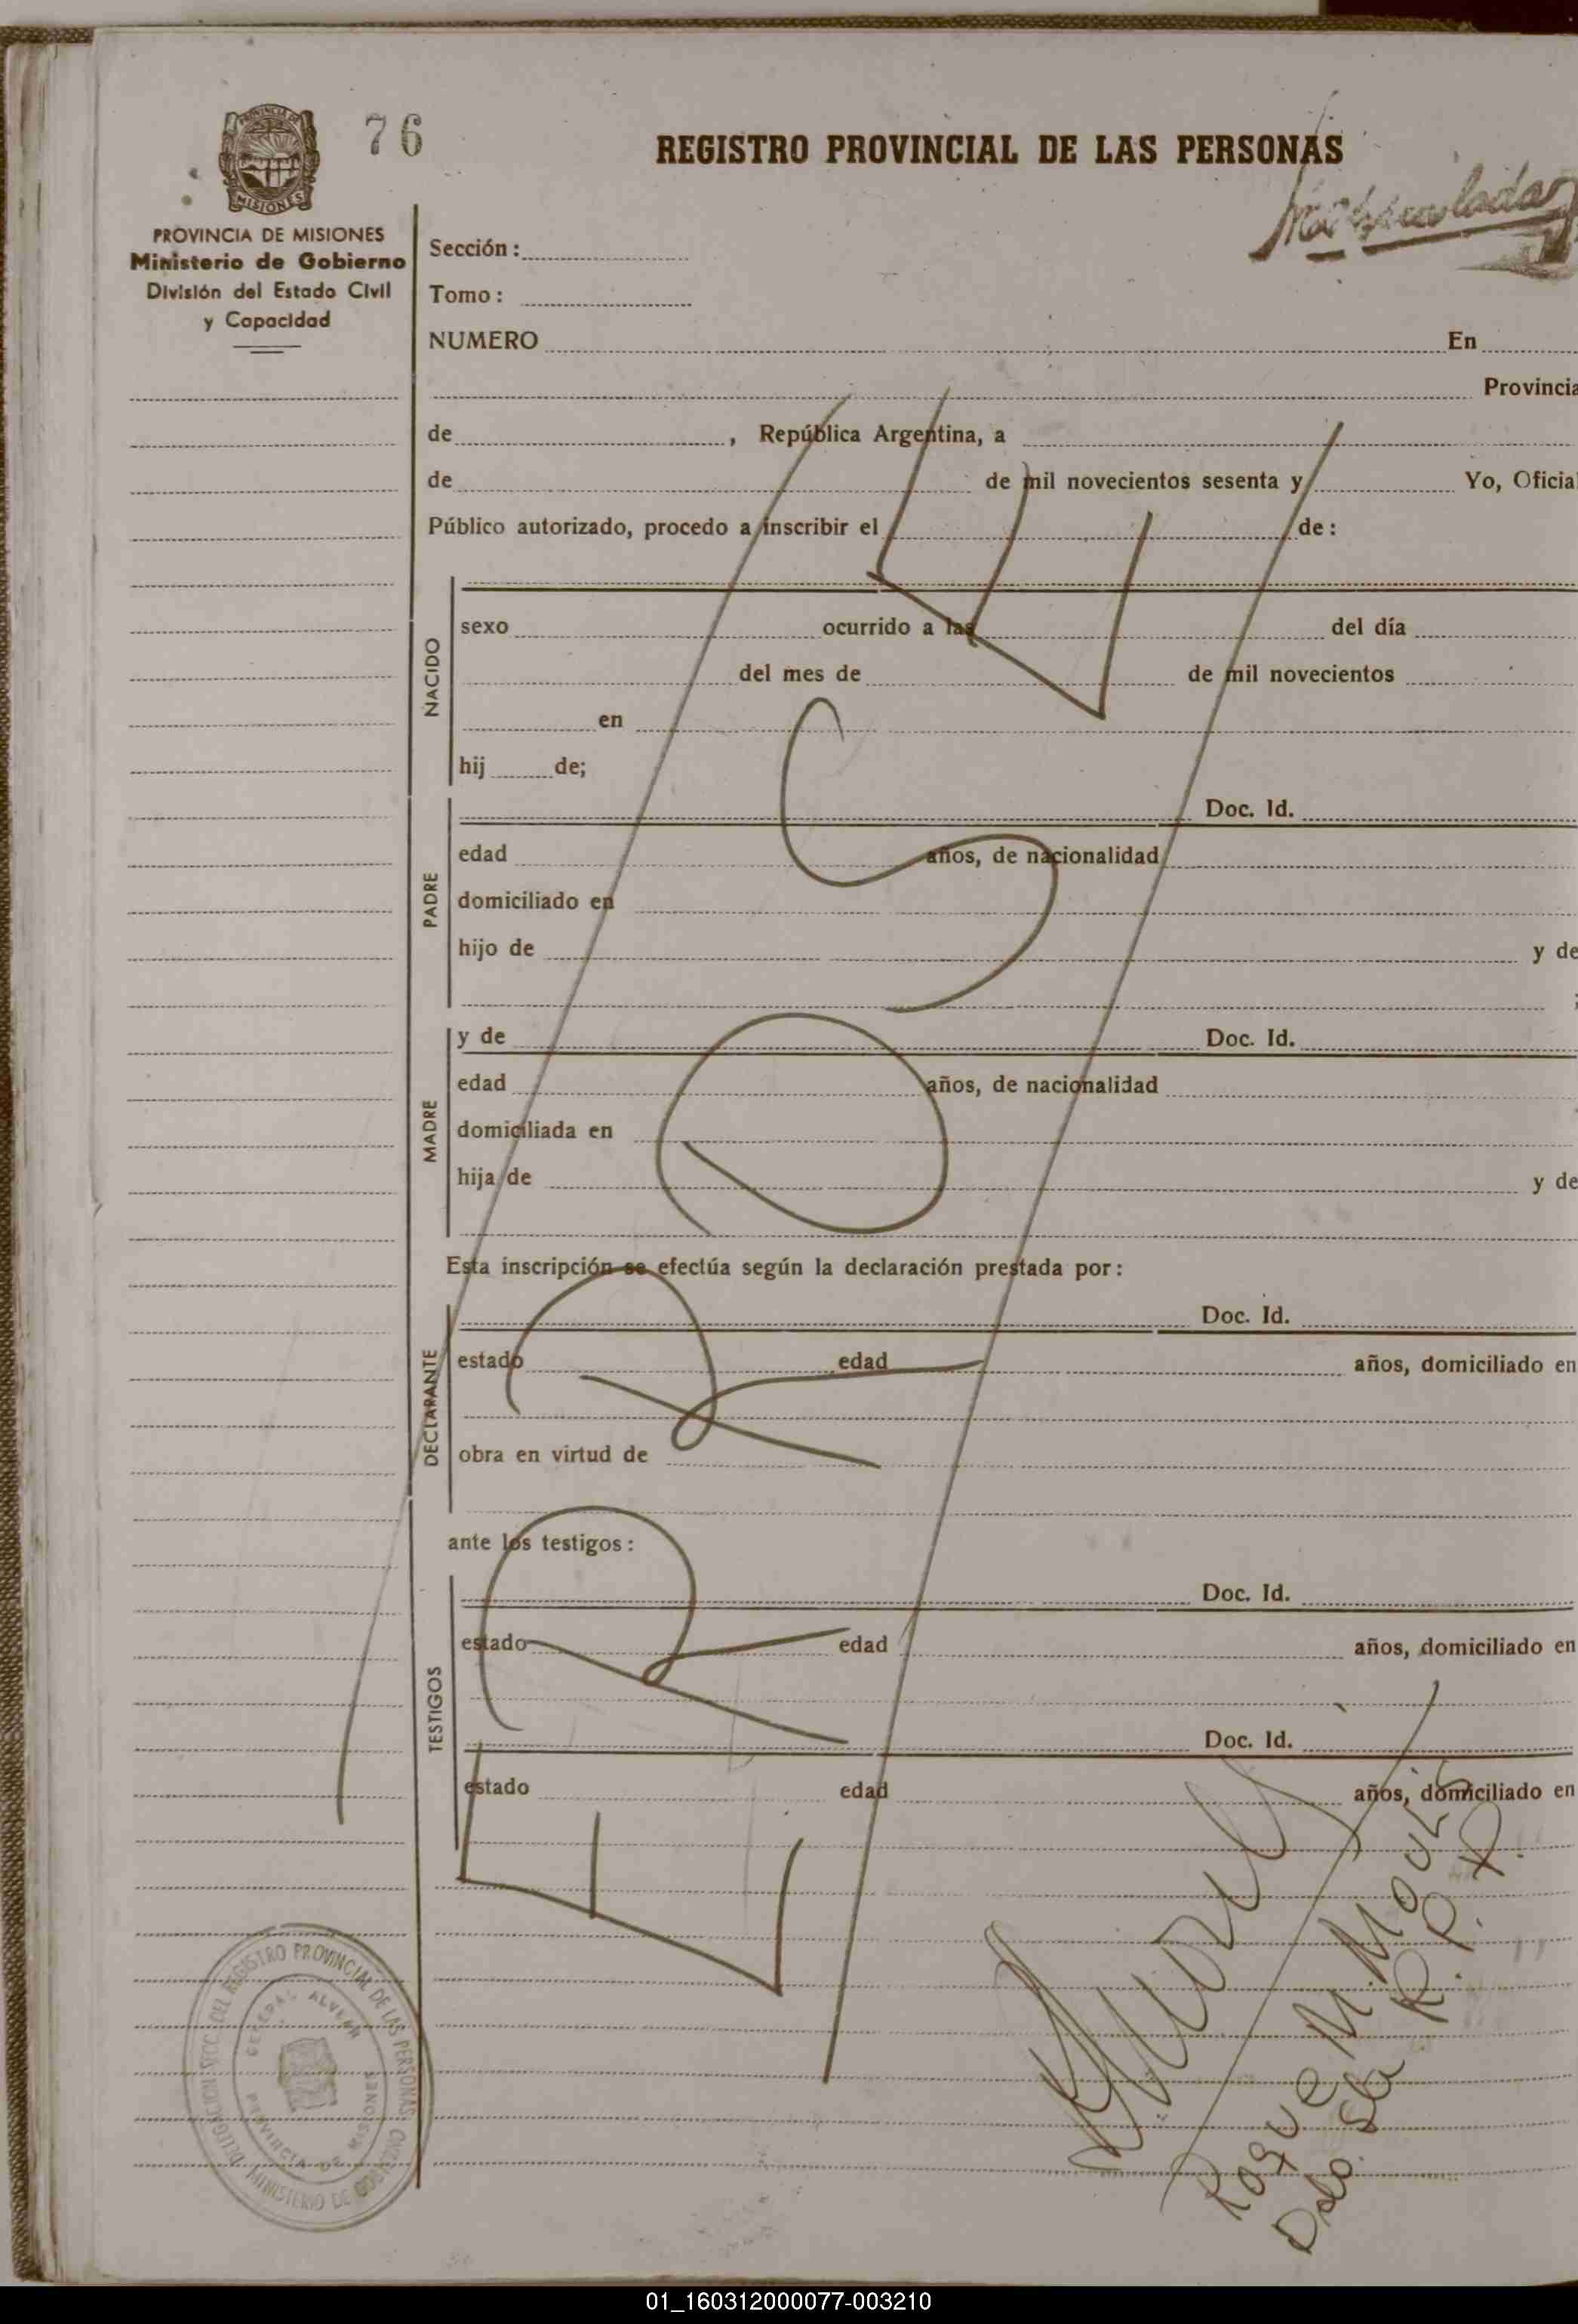 76
REGISTRO PROVINCIAL DE LAS PERSONAS
PROVINCIA DE MISIONES
Ministerio de Gobierno
División del Estado Civil
y Capacidad
PROVINCIA DE
MISIONES
Sección:
Tomo:
NUMERO En
Provincia
de , República Argentina, a
de de mil novecientos sesenta y Yo, Oficial
Público autorizado, procedo a inscribir el de:
NACIDO
sexo ocurrido a las del día
del mes de de mil novecientos
en
hij de;
PADRE
Doc. Id.
edad años, de nacionalidad
domiciliado en
hijo de y de
;
MADRE
y de Doc. Id.
edad años, de nacionalidad
domiciliada en
hija de y de
Esta inscripción se efectúa según la declaración prestada por:
DECLARANTE
Doc. Id.
estado edad años, domiciliado en
obra en virtud de
ante los testigos:
TESTIGOS
Doc. Id.
estado edad años, domiciliado en
Doc. Id.
estado edad años, domiciliado en
ERROSE
DELEGACION SECC. DEL REGISTRO PROVINCIAL DE LAS PERSONAS
MINISTERIO DE GOBIERNO
GENERAL ALVEAR
PROVINCIA DE MISIONES
Roque M. Mouris
Dlo. Sec. R. P. P.
01_160312000077-003210